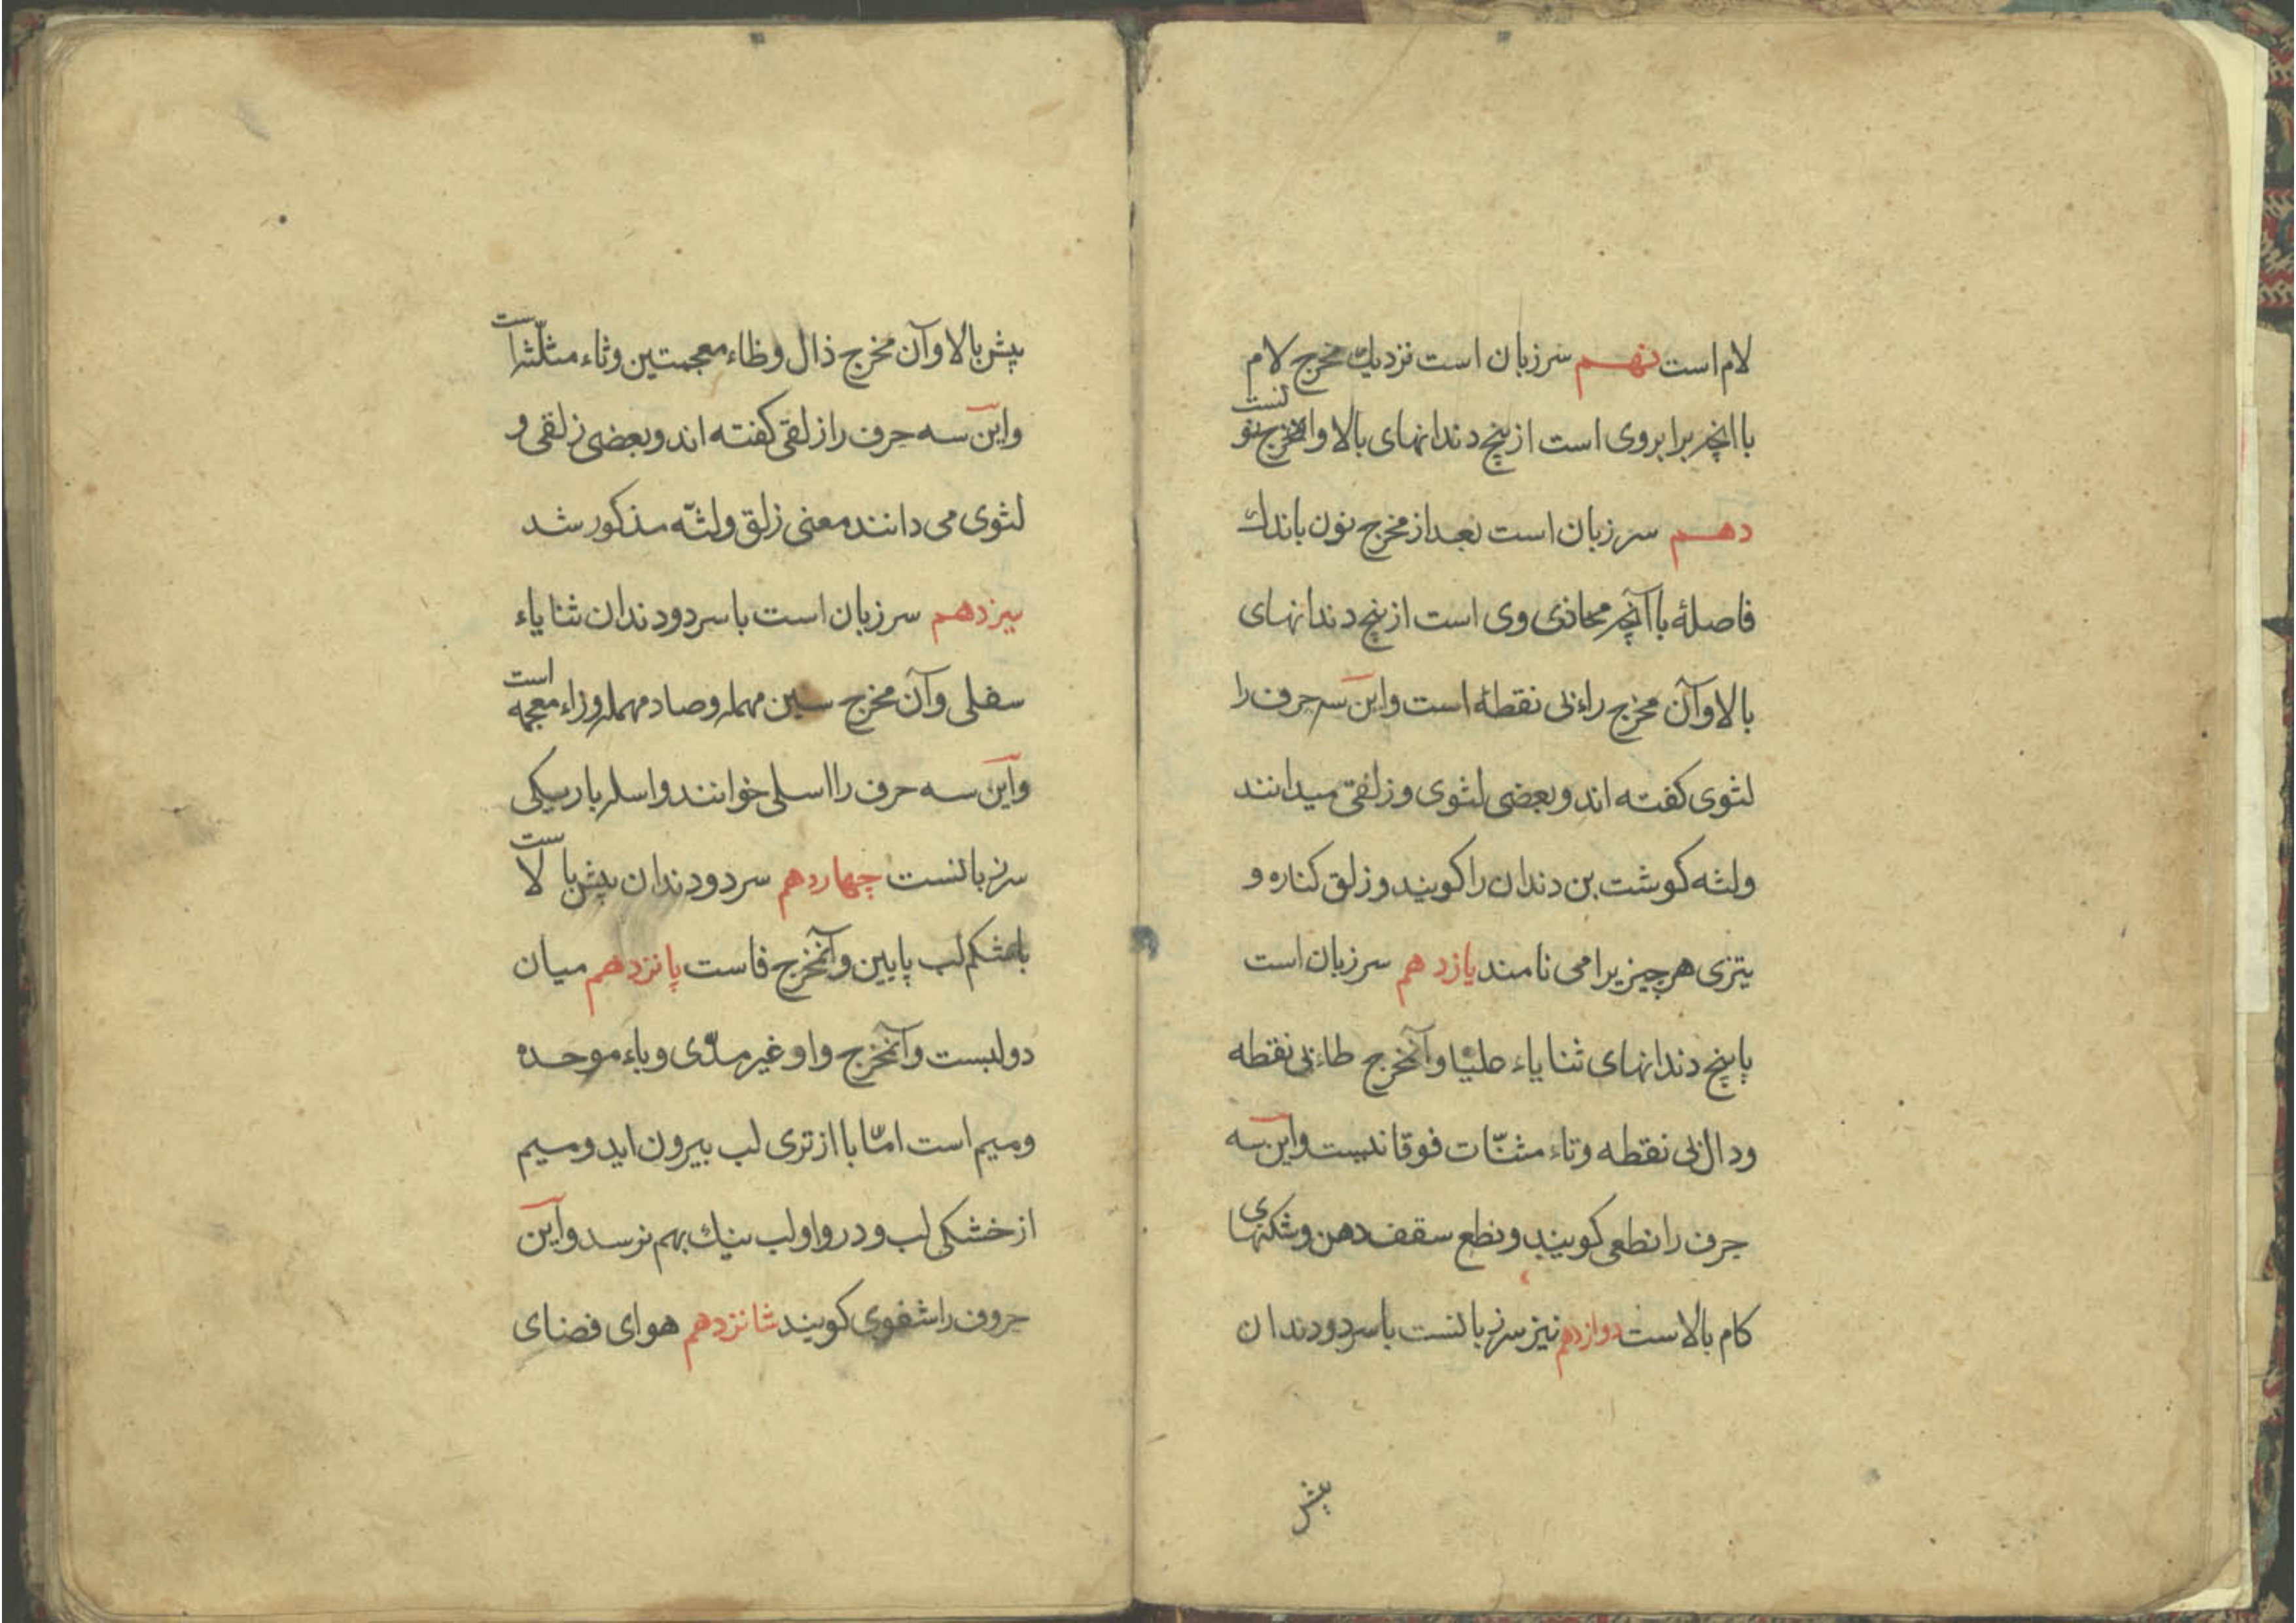 لام است نهم سر زبان است نزدیك مخرج لام
با انچه برابر وی است از بیخ دندانهای بالا و آنمخرج نونست
دهم سر زبان است بعد از مخرج نون باندك
فاصلۀ با آنچه محاذی وی است از بیخ دندانهای
بالا و آن مخرج راء بی نقطه است و این سه حرف را
لثوی کفته اند و بعضی لثوی و زلقی میدانند
و لثه کوشت بن دندان را کویند و زلق کناره و
تیزی هر چیز یرا می نامند یازدهم سر زبان است
با بیخ دندانهای ثنایاء علیا و آنمخرج طاء بی نقطه
و دال بی نقطه و تاء مثنّات فوقانیست و این سه
حرف را نطعی کویند و نطع سقف دهن و شکنهای
کام بالاست دوازدهم نیز سر زبانست با سر دو دندان
پیش
پیش بالا و آن مخرج ذال و ظاء معجمتین و ثاء مثلّثه است
و این سه حرف را زلقی کفته اند و بعضی زلقی و
لثوی می دانند معنی زلق و لثّه مذکور شد
سیزدهم سر زبان است با سر دو دندان ثنایاء
سفلی و آن مخرج سین مهمله و صاد مهمله و زاء معجمه است
و این سه حرف را اسلی خوانند و اسله باریکی
سر زبانست چهاردهم سر دو دندان پیش بالاست
با شکم لب پایین و آنمخرج فاست پانزدهم میان
دو لبست و آنمخرج واو غیر مدّی و باء موحده
و میم است امّا با از تری لب بیرون اید و میم
از خشکی لب و در واو لب نیك بهم نرسد و این
حروف را شفوی کویند شانزدهم هوای فضای